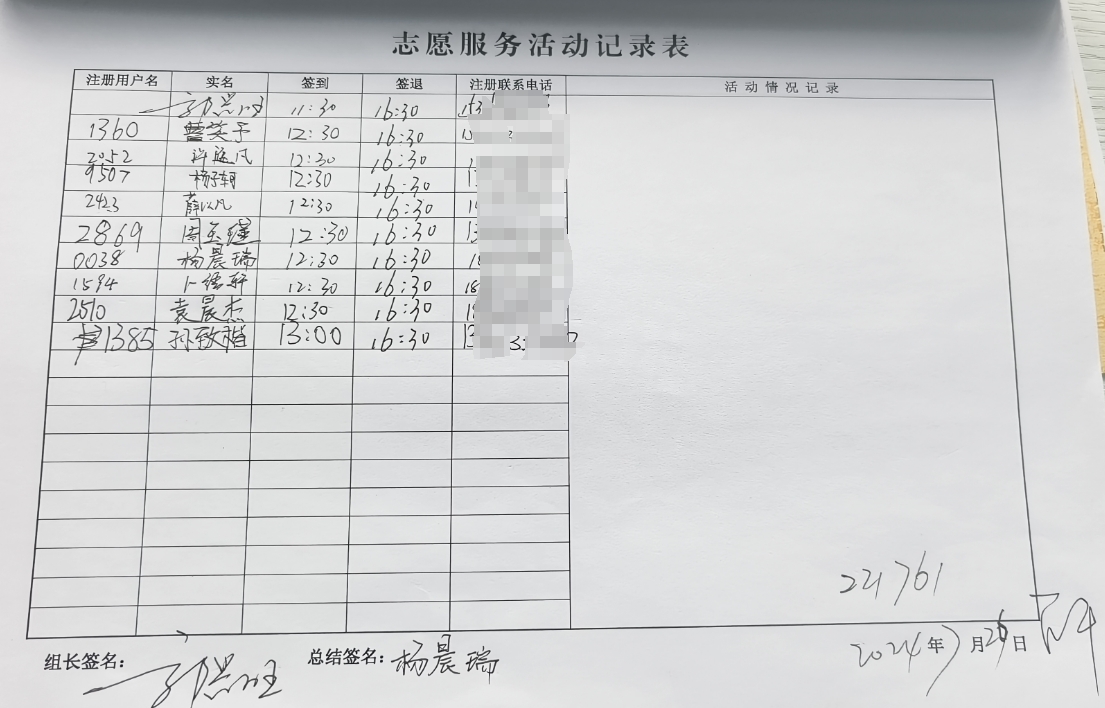 志愿服务活动记录表
注册用户名 实名 签到 签退 注册联系电话 活动情况记录
11:30 16:30
1360 12:30 16:30
2052 许 凡 12:30 16:30
9507 杨 12:30 16:30
2423 薛以凡 12:30 16:30
2869 周 瑾 12:30 16:30
0038 杨晨瑞 12:30 16:30
1594 卜 轩 12:30 16:30
2510 袁晨杰 12:30 16:30
1385 孙致楷 13:00 16:30
221761
组长签名: 总结签名: 杨晨瑞 2024年7月26日 下午